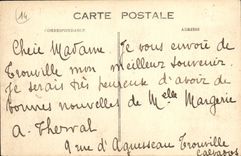 14
CARTE POSTALE
CORRESPONDANCE ADRESSE
Chère Madame. Je vous envoie de
Trouville mon meilleur souvenir.
Je serais très heureuse d'avoir de
bonnes nouvelles de Melle Margerie
A. Therval
9 rue d'Aguesseau Trouville
Calvados